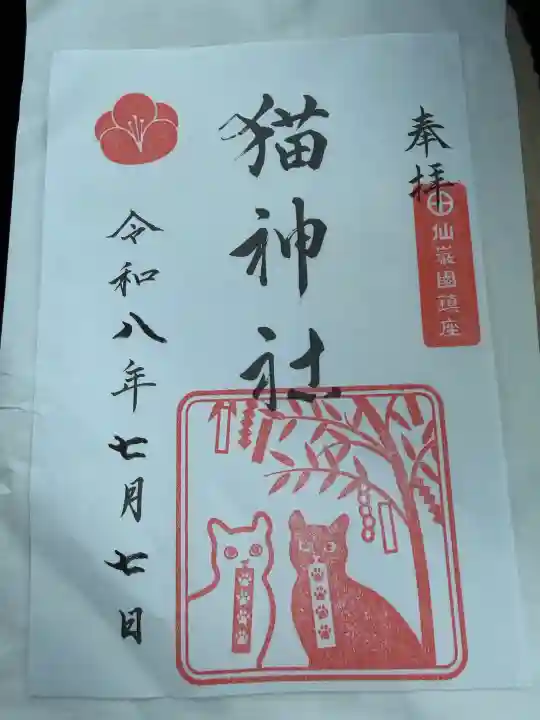 奉拝
仙巌園鎮座
猫神社
令和八年七月七日